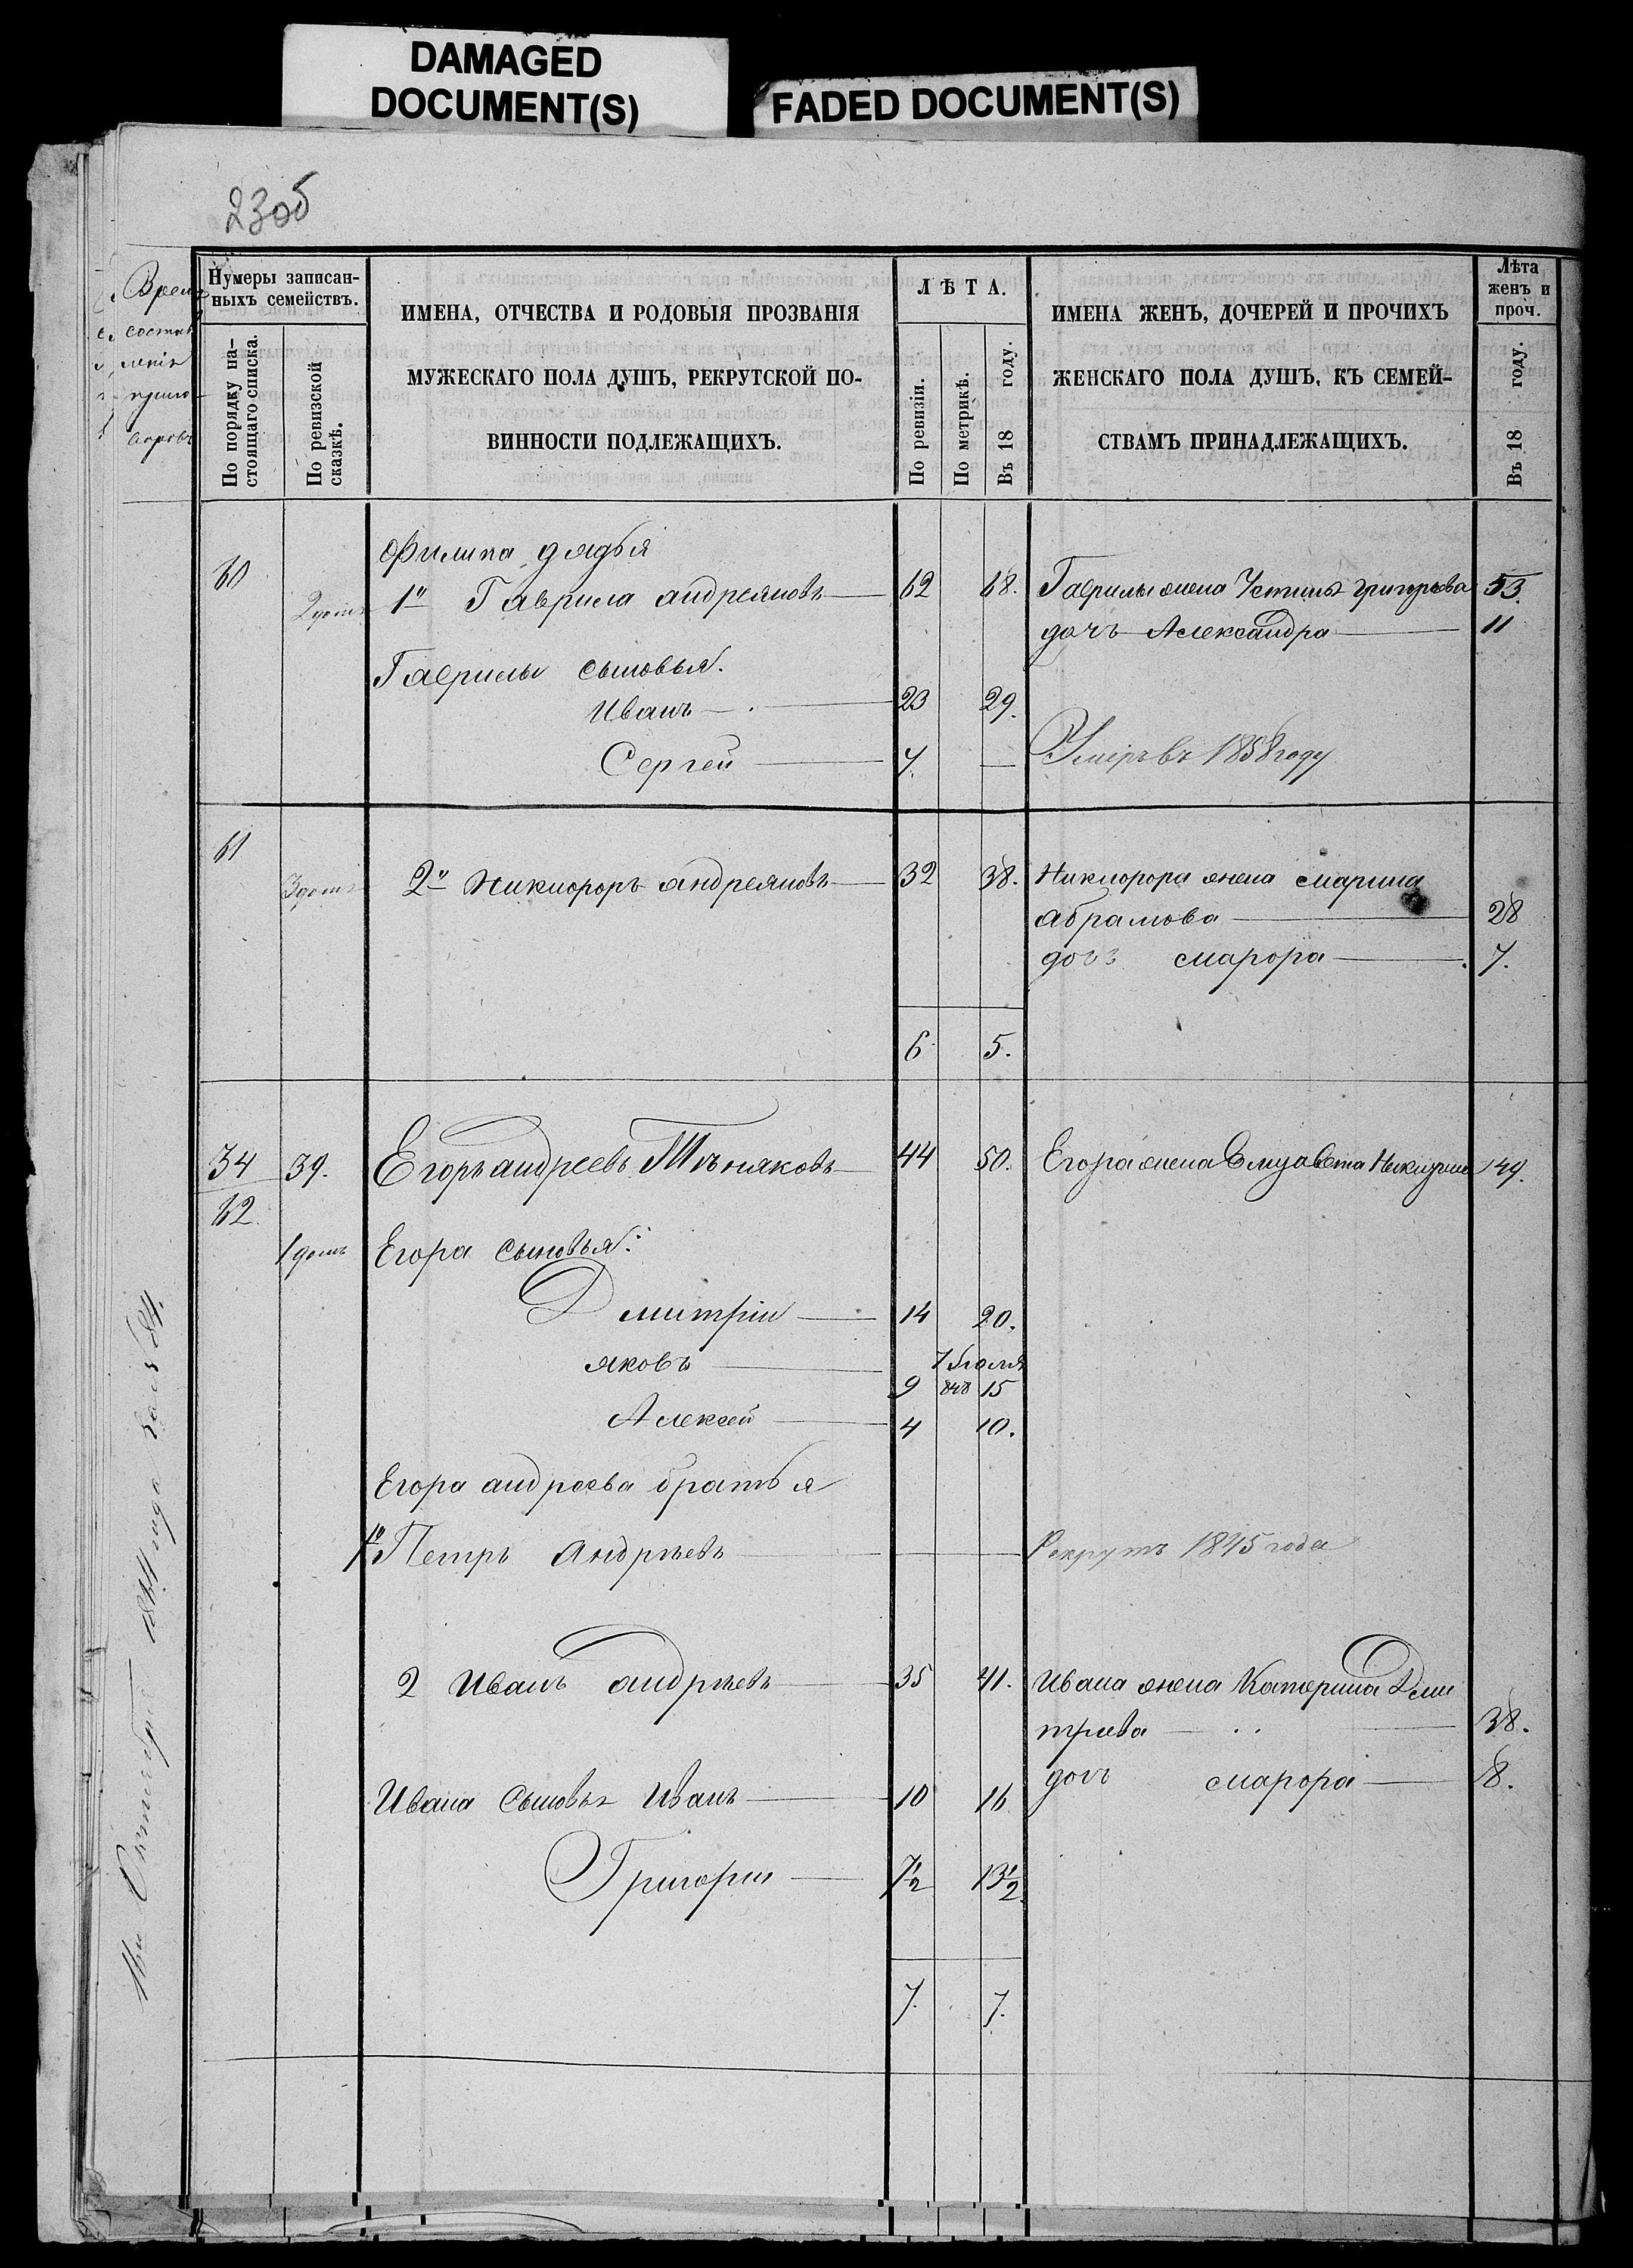 DAMAGED
DOCUMENT(S)
FADED DOCUMENT(S)
23об
Нумеры записан-
ныхъ семействъ.
По порядку на-
стоящаго списка.
По ревизской
сказкѣ.
ИМЕНА, ОТЧЕСТВА И РОДОВЫЯ ПРОЗВАНІЯ
МУЖЕСКАГО ПОЛА ДУШЪ, РЕКРУТСКОЙ ПО-
ВИННОСТИ ПОДЛЕЖАЩИХЪ.
ЛѢТА.
По ревизіи.
По метрикѣ.
Въ 18 году.
ИМЕНА ЖЕНЪ, ДОЧЕРЕЙ И ПРОЧИХЪ
ЖЕНСКАГО ПОЛА ДУШЪ, КЪ СЕМЕЙ-
СТВАМЪ ПРИНАДЛЕЖАЩИХЪ.
Лѣта
женъ и
проч.
Въ 18 году.
Филипа дядья
60 2 домъ 1й Гаврила андреяновъ 62 68. Гаврилы жена Устинья григорьева 53.
дочь Александра 11
Гаврилы сыновья.
Иванъ 23 29.
Сергей 7. — Умеръ въ 1858 году
61
3 домъ 2й Никифоръ андреяновъ 32 38. Никифора жена марина
абрамова 28
дочь марфа 7.
6 5.
34 39. Егоръ андреевъ 44 50. Егора жена Елизавета 49.
62
1 домъ Егора сыновья:
Дмитрій 14 20.
яковъ 9 848 15
Алексей 4 10.
Егора андреева братья
1й Петръ Андрѣевъ Рекрутъ 1845 года
2 Иванъ андрѣевъ 35 41. Ивана жена Катерина Дми
тріева 38.
дочь марфа 8.
Ивана сыновья Иванъ 10 16
Григорій 7½ 13½
7. 7.